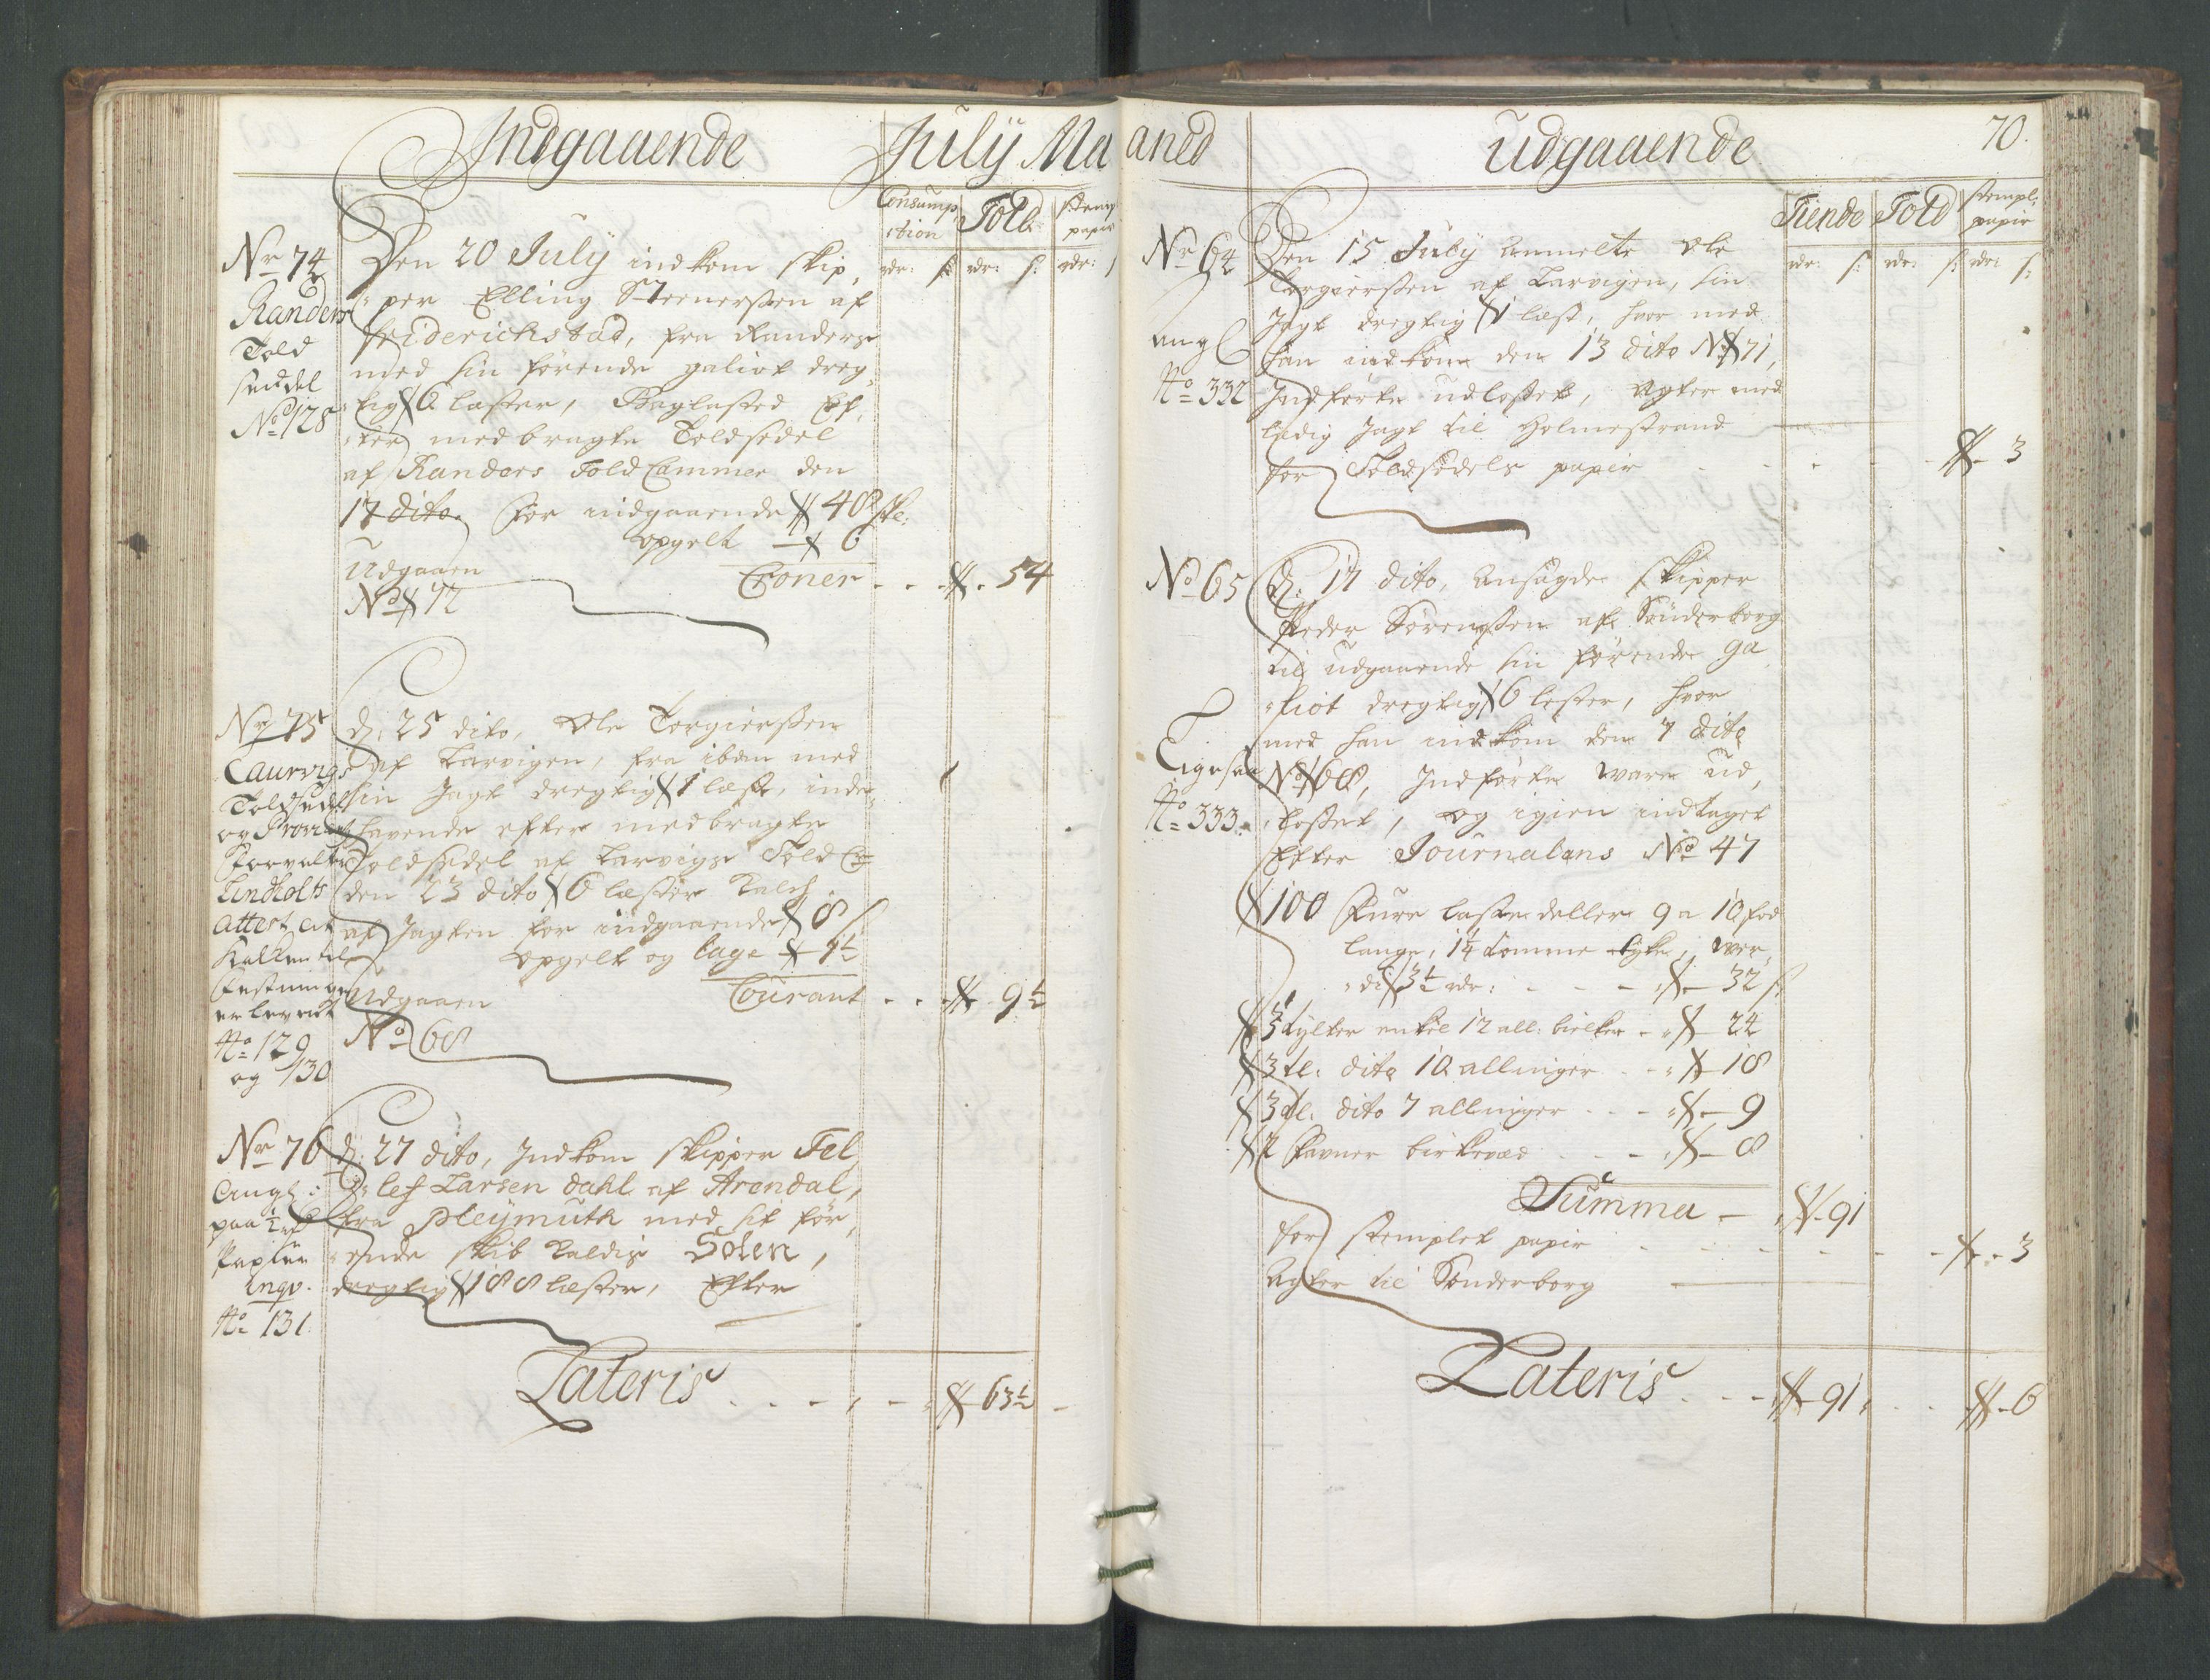 Indgaaende July Maaned udgaaende 70.
Consump¸
ction Told stemp
papir
rdr: s: rdr: s: rdr:
Nr 74
Randers
Told
seddel
No 128
Den 20 July indkom skip¸
per Elling Steenersen af
friderichstad, fra Randers
med sin førende galiot dreg¸
tig 6 læster, Baglasted Ef¸
ter medbragte Toldsedel
af Randers Told Cammer den
17 dito. for indgaaende 48 sk:
opgelt 6
Udgaaen Croner 54
No 72
Nr 75
Laurvigs
Toldsedel
og Proviant
forvalter
Lindholts
attest at
Kalken til
festningen
er leveret
No 129
og 130
d: 25 dito, Ole Torgiersen
af Larvigen, fra ibdm med
sin Jagt dregtig 1 læst, inde¸
havende efter medbragte
Toldsedel af Larvigs Told C
den 23 dito 6 læster Kalch
af Jagten for indgaaende 8 s
opgelt og lage 1½
Udgaaen Courant 9½
No 68
Nr 76
Engl:
paa ½ rd
Papiir
No 131.
d: 27 dito, Indkom skipper Tel¸
lef Larsen Dahl af Arendal,
fra Pleymuth med sit før¸
ende skib kaldis Solen,
dregtig 188 læster, Efter
Lateris 63½
Tiende Told stempl:
papir
rdr: s: rdr: s: rdr: s:
Nr 64
No 332
Den 15 July anmelte Ole
Torgiersen af Larvigen, sin
Jagt dregtig 1 læst, hvor med
han indkom den 13 dito No 71,
Indførte udlosset, agter med
ledig Jagt til Holmestrand
for Toldsedels papir 3
No 65
Ligesaa
No 333.
d: 17 dito, ansagde skipper
Peder Sørensen af Sønderborg
til udgaaende sin førende ga¸
liot dregtig 6 lester, hvor
med han indkom den 7 dito
No 68, Indførte ware ud¸
losset, og igien indtaget
Efter Journalens No 47
100 Fure lastedeller 9 a 10 fod
lange, 1¼ tomme tyke, wer¸
di 3½ rdr: 32 s
3 tylter enkel 12 all: bielker 24
3 tl: dito 10 allinger 18
3 tl: dito 7 allinger 9
2 Favner birkeved 8
Summa 91
for stemplet papir 3
Agter til Sønderborg
Lateris 91 6